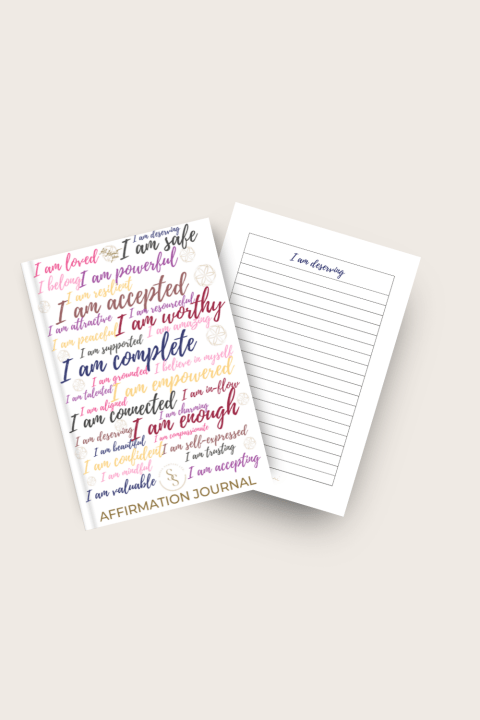 I am deserving
I am loved
I am safe
I belong
I am powerful
I am resilient
I am accepted
I am resourceful
I am attractive
I am worthy
I am peaceful
I am amazing
I am supported
I am complete
I am grounded
I believe in myself
I am talented
I am empowered
I am aligned
I am in-flow
I am connected
I am charming
I am deserving
I am enough
I am beautiful
I am compassionate
I am confident
I am self-expressed
I am mindful
I am trusting
I am valuable
I am accepting
AFFIRMATION JOURNAL
I am deserving